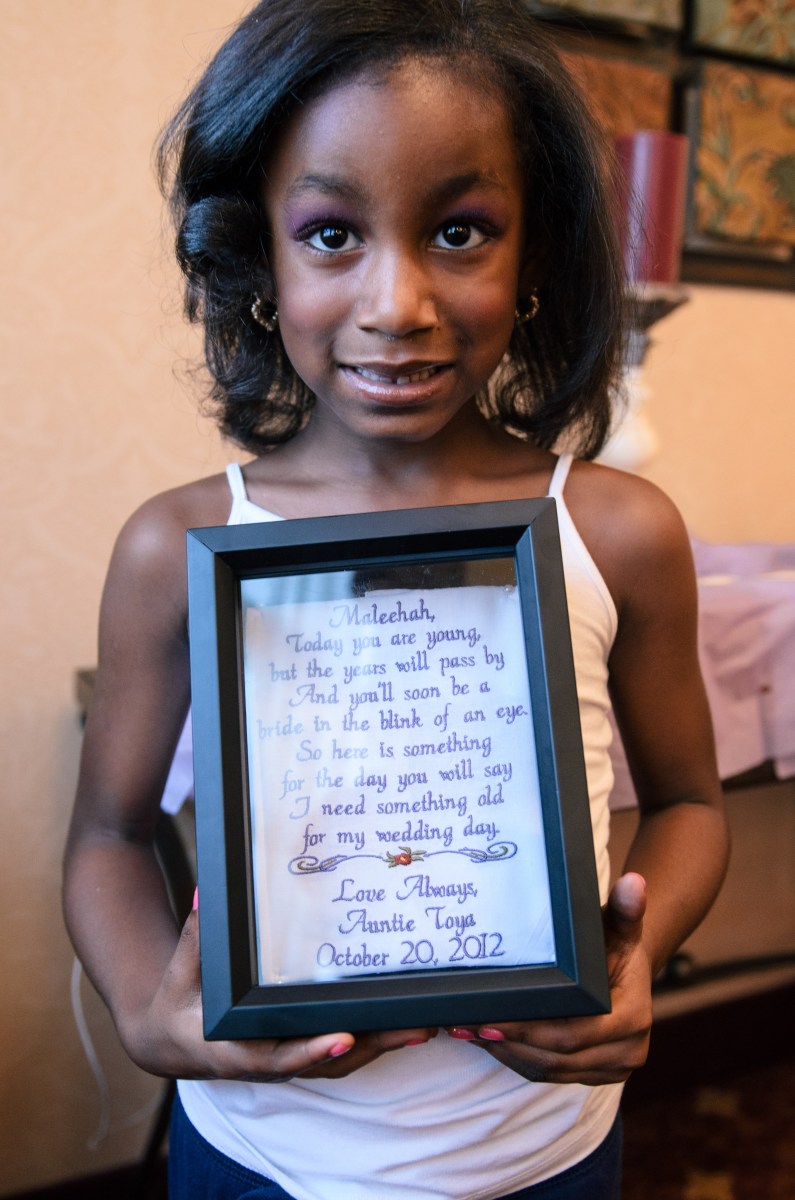 Maleehah,
Today you are young,
but the years will pass by
And you'll soon be a
bride in the blink of an eye.
So here is something
for the day you will say
I need something old
for my wedding day.
Love Always,
Auntie Toya
October 20, 2012